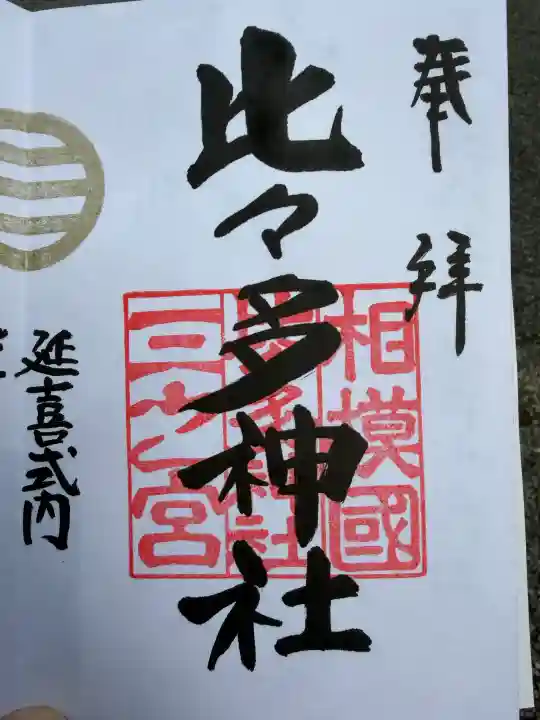 奉拝
比々多神社
相模國
比々多神社
三之宮
延喜式内